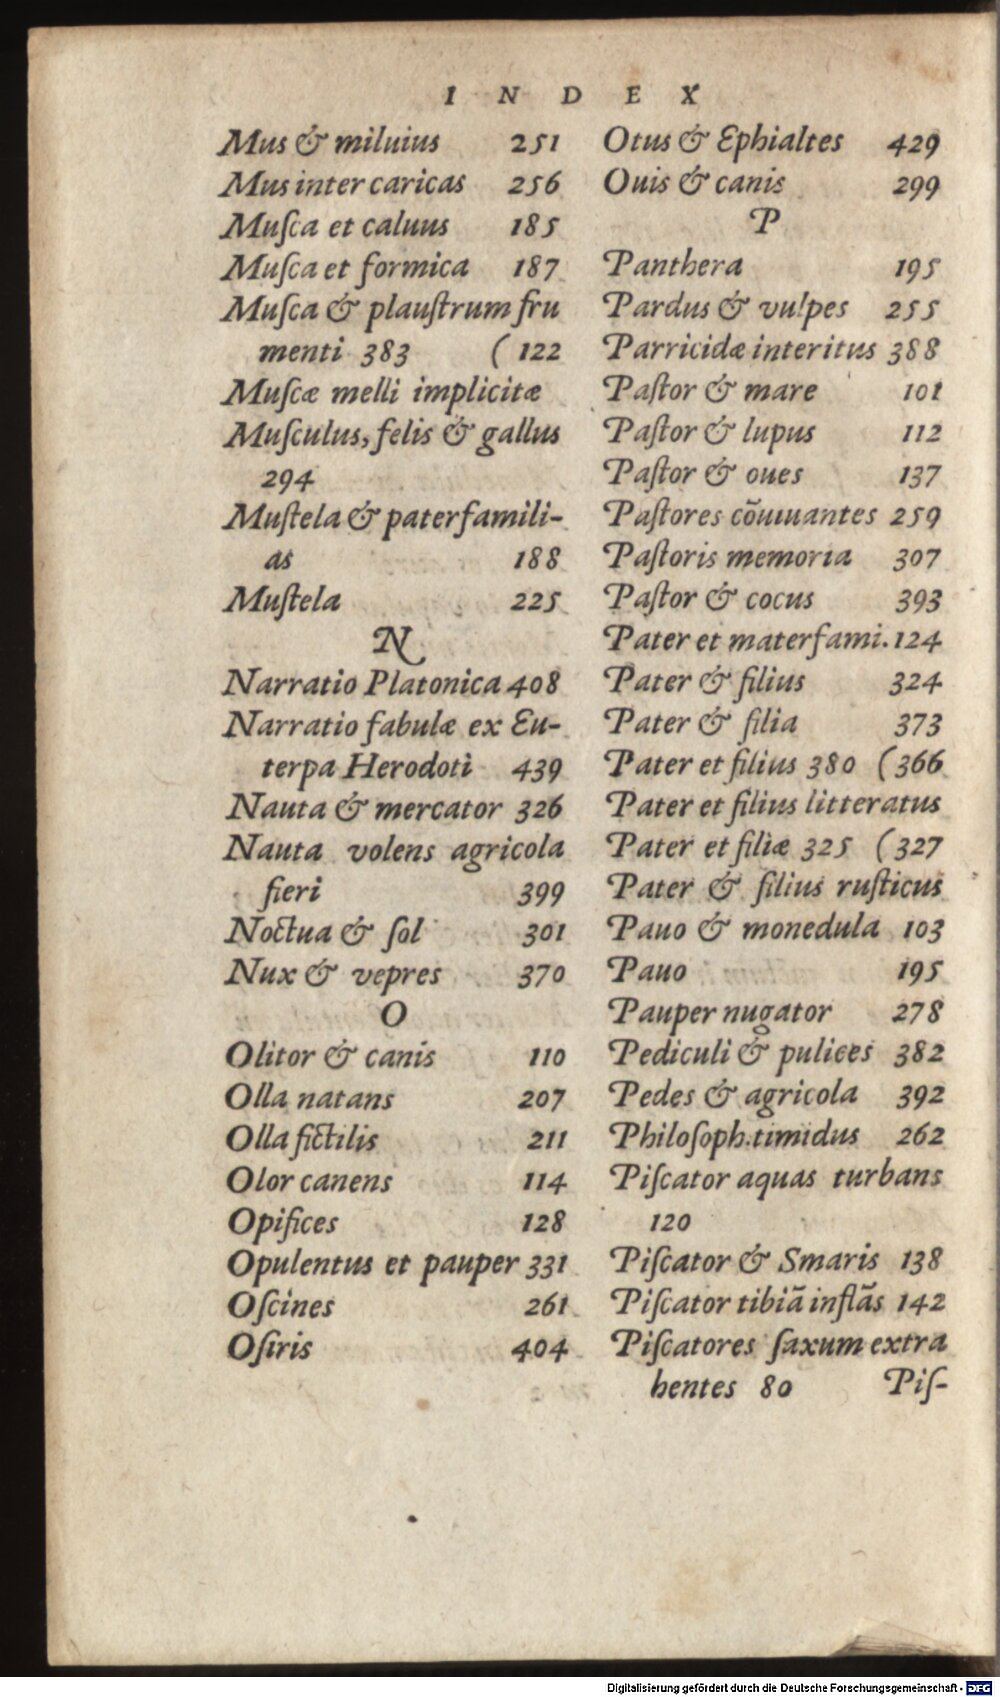 INDEX
Mus & miluius 251
Mus inter caricas 256
Muſca et caluus 185
Muſca et formica 187
Muſca & plauſtrum fru
menti 383 (122
Muſcæ melli implicitæ
Muſculus, felis & gallus
294
Muſtela & paterfamili-
as 188
Muſtela 225
N
Narratio Platonica 408
Narratio fabulæ ex Eu-
terpa Herodoti 439
Nauta & mercator 326
Nauta volens agricola
fieri 399
Noctua & ſol 301
Nux & vepres 370
O
Olitor & canis 110
Olla natans 207
Olla fictilis 211
Olor canens 114
Opifices 128
Opulentus et pauper 331
Oſcines 261
Oſiris 404
Otus & Ephialtes 429
Ouis & canis 299
P
Panthera 195
Pardus & vulpes 255
Parricidæ interitus 388
Paſtor & mare 101
Paſtor & lupus 112
Paſtor & oues 137
Paſtores cõuiuantes 259
Paſtoris memoria 307
Paſtor & cocus 393
Pater et materfami. 124
Pater & filius 324
Pater & filia 373
Pater et filius 380 (366
Pater et filius litteratus
Pater et filiæ 325 (327
Pater & filius ruſticus
Pauo & monedula 103
Pauo 195
Pauper nugator 278
Pediculi & pulices 382
Pedes & agricola 392
Philoſoph. timidus 262
Piſcator aquas turbans
120
Piſcator & Smaris 138
Piſcator tibiã inflãs 142
Piſcatores ſaxum extra
hentes 80 Piſ-
Digitalisierung gefördert durch die Deutsche Forschungsgemeinschaft - DFG